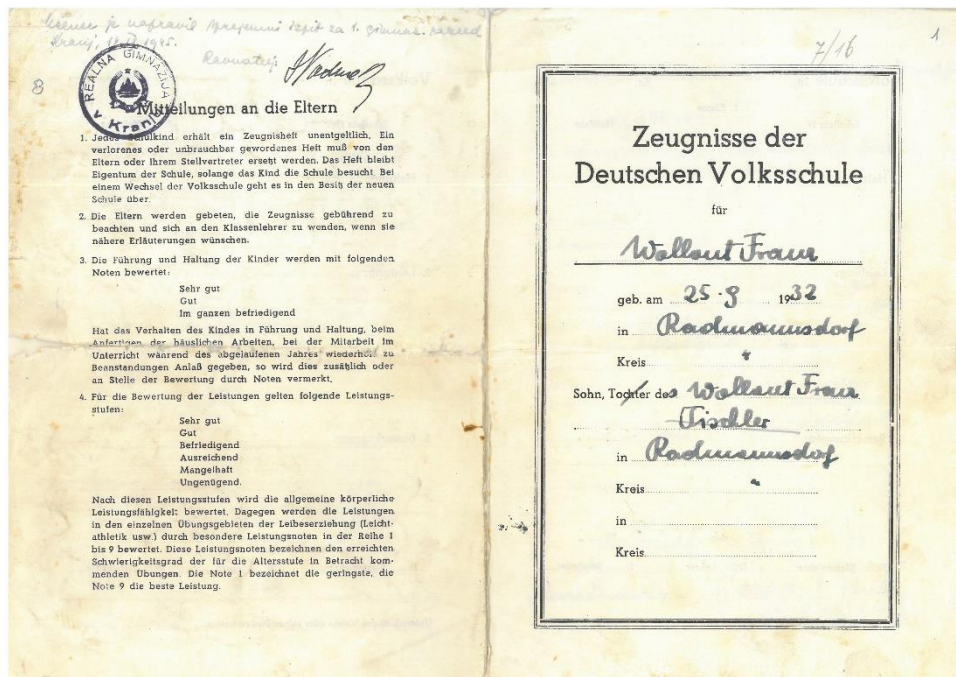 Učenec je napravil sprejemni izpit za 1. gimnaz. razred
Kranj, 1945.
Ravnatelj:
REALNA GIMNAZIJA
v Kranju
8
Mitteilungen an die Eltern
1. Jedes Schulkind erhält ein Zeugnisheft unentgeltlich, Ein
verlorenes oder unbrauchbar gewordenes Heft muß von den
Eltern oder Ihrem Stellvertreter ersetzt werden. Das Heft bleibt
Eigentum der Schule, solange das Kind die Schule besucht. Bei
einem Wechsel der Volksschule geht es in den Besitz der neuen
Schule über.
2. Die Eltern werden gebeten, die Zeugnisse gebührend zu
beachten und sich an den Klassenlehrer zu wenden, wenn sie
nähere Erläuterungen wünschen.
3. Die Führung und Haltung der Kinder werden mit folgenden
Noten bewertet:
Sehr gut
Gut
Im ganzen befriedigend
Hat das Verhalten des Kindes in Führung und Haltung, beim
Anfertigen der häuslichen Arbeiten, bei der Mitarbeit im
Unterricht während des abgelaufenen Jahres wiederholt zu
Beanstandungen Anlaß gegeben, so wird dies zusätzlich oder
an Stelle der Bewertung durch Noten vermerkt.
4. Für die Bewertung der Leistungen gelten folgende Leistungs-
stufen:
Sehr gut
Gut
Befriedigend
Ausreichend
Mangelhaft
Ungenügend.
Nach diesen Leistungsstufen wird die allgemeine körperliche
Leistungsfähigkeit bewertet. Dagegen werden die Leistungen
in den einzelnen Übungsgebieten der Leibeserziehung (Leicht-
athletik usw.) durch besondere Leistungsnoten in der Reihe 1
bis 9 bewertet. Diese Leistungsnoten bezeichnen den erreichten
Schwierigkeitsgrad der für die Altersstufe in Betracht kom-
menden Übungen. Die Note 1 bezeichnet die geringste, die
Note 9 die beste Leistung.
7/16
1
Zeugnisse der
Deutschen Volksschule
für
Wollaut Franz
geb. am 25.9. 1932
in Radmannsdorf
Kreis "
Sohn, Tochter des Wollaut Franz
Tischler
in Radmannsdorf
Kreis "
in
Kreis